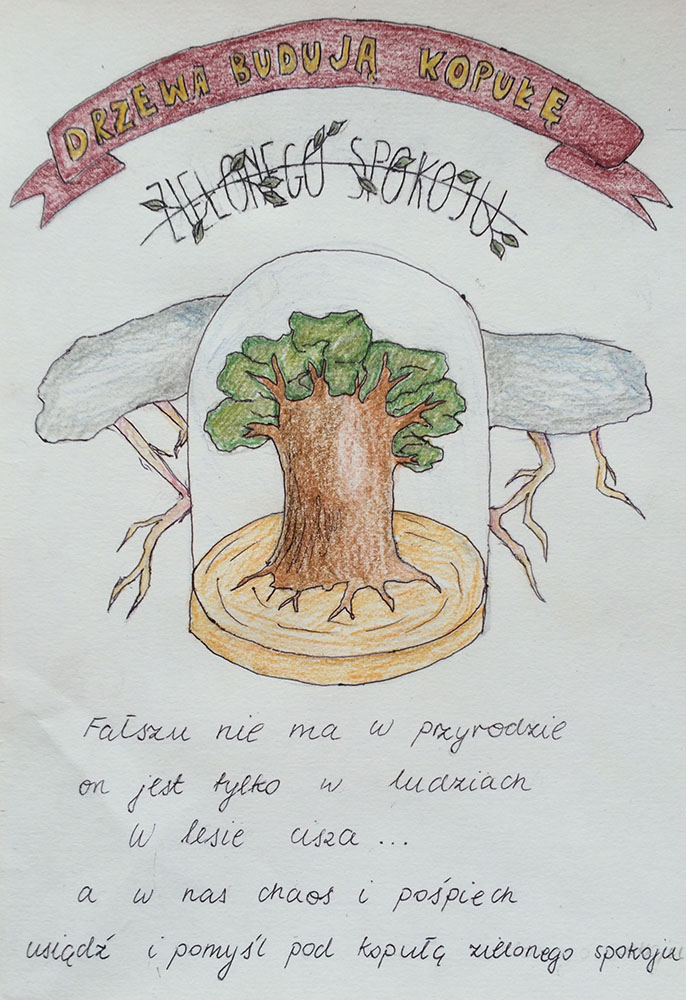 DRZEWA BUDUJĄ KOPUŁĘ
ZIELONEGO SPOKOJU
Fałszu nie ma w przyrodzie
on jest tylko w ludziach
W lesie cisza...
a w nas chaos i pośpiech
usiądź i pomyśl pod kopułą zielonego spokoju